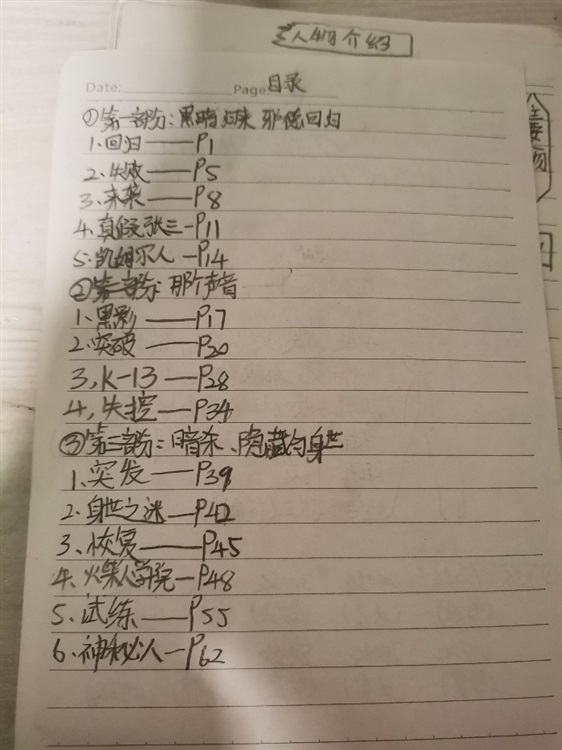 人物介绍
Date:
Page 目录
①第一部分:黑暗归来 邪能回归
1.回归——P1
2.失败——P5
3.未来——P8
4.真假张三-P11
5.凯姆尔人-P14
②第二部分:那个声音
1.黑影——P17
2.突破——P20
3,K-13——P28
4,失控——P34
③第三部分:暗杀、隐藏的身世
1.突发——P39
2.身世之迷—P42
3、恢复——P45
4.火柴人学院—P48
5.试练——P55
6.神秘人—P62